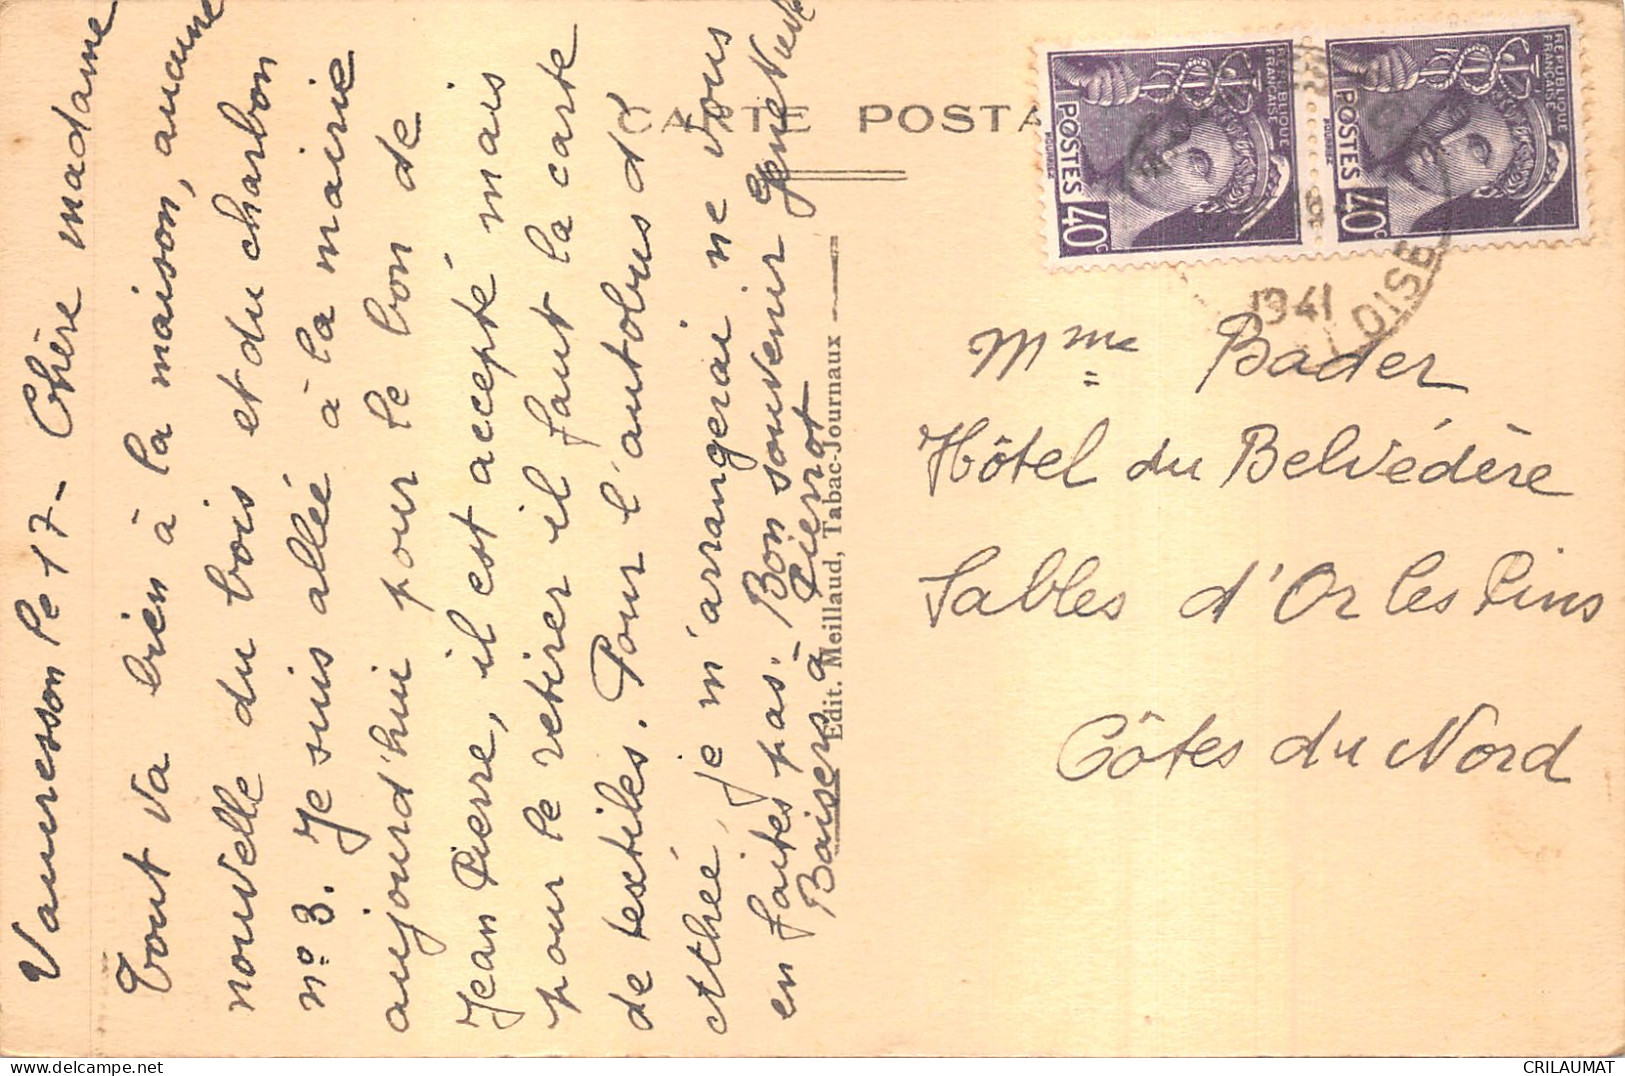 Vaucresson le 17 - Chère madame
Tout va bien à la maison, aucune
nouvelle du bois et du charbon
n° 3. Je suis allée à la mairie
aujourd'hui pour le bon de
Jean Pierre, il est accepté mais
pour le retirer il faut la carte
de textiles. Pour l'autobus d'
Athée, je m'arrangerai ne vous
en faites pas. Bon souvenir Geneviève
Baisers à Pierrot
CARTE POSTA
Edit. Meillaud, Tabac-Journaux
REPUBLIQUE
FRANÇAISE
POSTES
40c
REPUBLIQUE
FRANÇAISE
POSTES
40c
1941
OISE
Mme Bader
Hôtel du Belvédère
Sables d'Or les Pins
Côtes du Nord
delcampe.net
CRILAUMAT